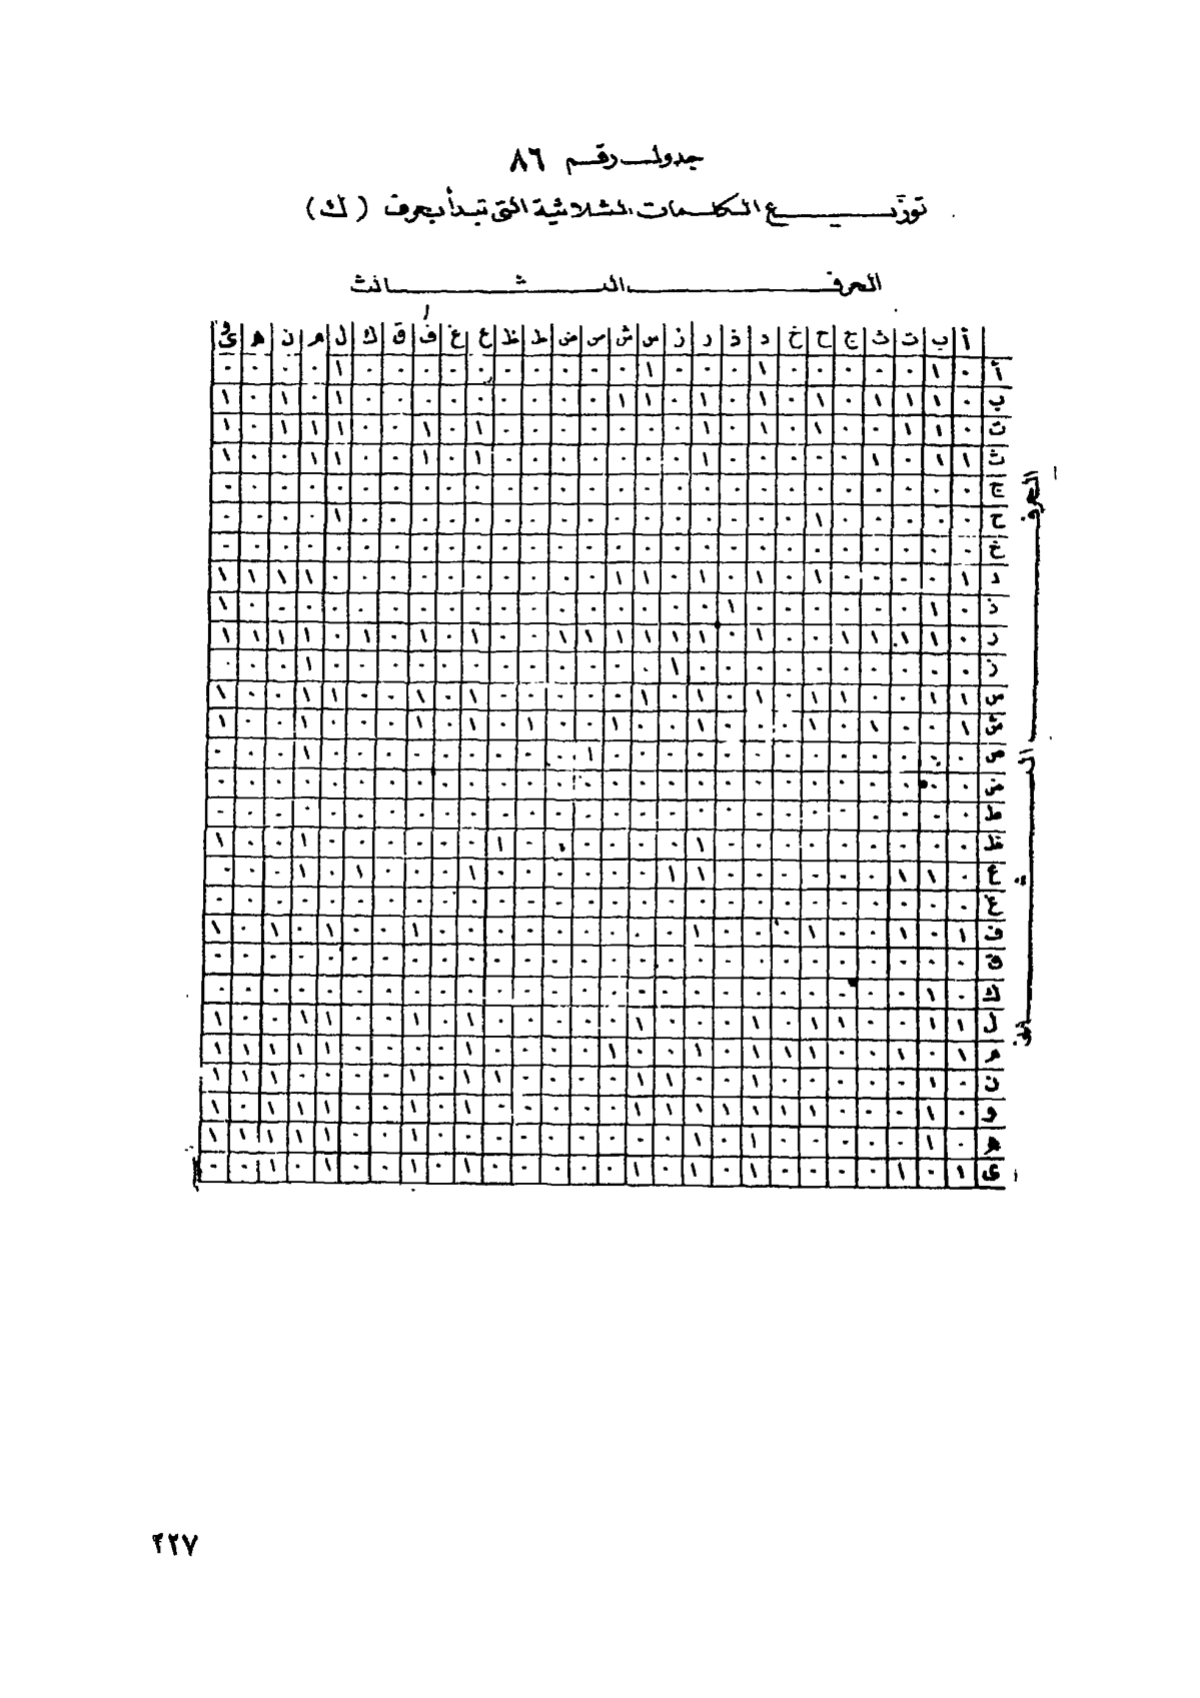 جدول رقم ٨٦
توزيع الكلمات الثلاثية التى تبدأ بحرف (ك)
الحرف الثالث
أ ب ت ث ج ح خ د ذ ر ز س ش ص ض ط ظ ع غ ف ق ك ل م ن ه و ى
أ ٠ ١ ٠ ٠ ٠ ٠ ٠ ١ ٠ ٠ ٠ ١ ٠ ٠ ٠ ٠ ٠ ٠ ٠ ٠ ٠ ٠ ١ ٠ ٠ ٠ ٠
ب ٠ ١ ١ ١ ٠ ١ ٠ ١ ٠ ١ ٠ ١ ١ ٠ ٠ ٠ ٠ ٠ ٠ ٠ ٠ ٠ ١ ٠ ١ ٠ ١
ت ٠ ١ ١ ٠ ٠ ١ ٠ ١ ٠ ١ ٠ ٠ ٠ ٠ ٠ ٠ ٠ ١ ٠ ١ ٠ ٠ ١ ١ ١ ٠ ١
ث ١ ١ ٠ ١ ٠ ٠ ٠ ٠ ٠ ١ ٠ ٠ ٠ ٠ ٠ ٠ ٠ ١ ٠ ١ ٠ ٠ ١ ١ ٠ ٠ ١
ج ٠ ٠ ٠ ٠ ٠ ٠ ٠ ٠ ٠ ٠ ٠ ٠ ٠ ٠ ٠ ٠ ٠ ٠ ٠ ٠ ٠ ٠ ٠ ٠ ٠ ٠ ٠
ح ٠ ٠ ٠ ٠ ٠ ١ ٠ ٠ ٠ ٠ ٠ ٠ ٠ ٠ ٠ ٠ ٠ ٠ ٠ ٠ ٠ ٠ ١ ٠ ٠ ٠ ٠
خ ٠ ٠ ٠ ٠ ٠ ٠ ٠ ٠ ٠ ٠ ٠ ٠ ٠ ٠ ٠ ٠ ٠ ٠ ٠ ٠ ٠ ٠ ٠ ٠ ٠ ٠ ٠
د ١ ٠ ٠ ٠ ٠ ١ ٠ ١ ٠ ١ ٠ ١ ١ ٠ ٠ ٠ ٠ ٠ ٠ ٠ ٠ ٠ ٠ ١ ١ ١ ١
ذ ٠ ١ ٠ ٠ ٠ ٠ ٠ ٠ ١ ٠ ٠ ٠ ٠ ٠ ٠ ٠ ٠ ٠ ٠ ٠ ٠ ٠ ٠ ٠ ٠ ٠ ١
ر ٠ ١ ١ ١ ١ ٠ ٠ ١ ٠ ١ ١ ١ ١ ١ ١ ٠ ٠ ١ ٠ ١ ٠ ١ ٠ ١ ١ ١ ١
ز ٠ ٠ ٠ ٠ ٠ ٠ ٠ ٠ ٠ ٠ ١ ٠ ٠ ٠ ٠ ٠ ٠ ٠ ٠ ٠ ٠ ٠ ٠ ١ ٠ ٠ ٠
س ١ ١ ٠ ٠ ١ ١ ٠ ١ ٠ ١ ٠ ١ ٠ ٠ ٠ ٠ ٠ ١ ٠ ١ ٠ ٠ ١ ١ ٠ ٠ ١
ش ١ ٠ ٠ ١ ٠ ١ ٠ ٠ ٠ ١ ٠ ٠ ١ ٠ ٠ ١ ٠ ١ ٠ ١ ٠ ٠ ٠ ١ ٠ ٠ ١
ص ٠ ٠ ٠ ٠ ٠ ٠ ٠ ٠ ٠ ٠ ٠ ٠ ٠ ١ ٠ ٠ ٠ ٠ ٠ ٠ ٠ ٠ ٠ ١ ٠ ٠ ٠
ض ٠ ٠ ٠ ٠ ٠ ٠ ٠ ٠ ٠ ٠ ٠ ٠ ٠ ٠ ٠ ٠ ٠ ٠ ٠ ٠ ٠ ٠ ٠ ٠ ٠ ٠ ٠
ط ٠ ٠ ٠ ٠ ٠ ٠ ٠ ٠ ٠ ٠ ٠ ٠ ٠ ٠ ٠ ٠ ٠ ٠ ٠ ٠ ٠ ٠ ٠ ٠ ٠ ٠ ٠
ظ ٠ ٠ ٠ ٠ ٠ ٠ ٠ ٠ ٠ ١ ٠ ٠ ٠ ٠ ٠ ٠ ١ ٠ ٠ ٠ ٠ ٠ ٠ ١ ٠ ٠ ١
ع ٠ ١ ١ ٠ ٠ ٠ ٠ ٠ ٠ ١ ١ ٠ ٠ ٠ ٠ ٠ ٠ ١ ٠ ٠ ٠ ١ ٠ ١ ٠ ٠ ٠
غ ٠ ٠ ٠ ٠ ٠ ٠ ٠ ٠ ٠ ٠ ٠ ٠ ٠ ٠ ٠ ٠ ٠ ٠ ٠ ٠ ٠ ٠ ٠ ٠ ٠ ٠ ٠
ف ١ ٠ ١ ٠ ٠ ١ ٠ ٠ ٠ ١ ٠ ٠ ٠ ٠ ٠ ٠ ٠ ٠ ٠ ١ ٠ ٠ ١ ٠ ١ ٠ ١
ق ٠ ٠ ٠ ٠ ٠ ٠ ٠ ٠ ٠ ٠ ٠ ٠ ٠ ٠ ٠ ٠ ٠ ٠ ٠ ٠ ٠ ٠ ٠ ٠ ٠ ٠ ٠
ك ٠ ١ ٠ ٠ ٠ ٠ ٠ ٠ ٠ ٠ ٠ ٠ ٠ ٠ ٠ ٠ ٠ ٠ ٠ ٠ ٠ ٠ ٠ ٠ ٠ ٠ ٠
ل ١ ١ ٠ ٠ ١ ١ ٠ ١ ٠ ٠ ٠ ١ ٠ ٠ ٠ ٠ ٠ ١ ٠ ١ ٠ ٠ ١ ١ ٠ ٠ ١
م ١ ٠ ١ ٠ ٠ ١ ١ ١ ٠ ١ ٠ ٠ ١ ٠ ٠ ٠ ٠ ١ ٠ ٠ ٠ ٠ ١ ١ ١ ١ ١
ن ٠ ١ ٠ ٠ ٠ ٠ ٠ ١ ٠ ٠ ١ ١ ٠ ٠ ٠ ٠ ١ ١ ٠ ١ ٠ ٠ ٠ ٠ ١ ١ ١
و ٠ ١ ٠ ٠ ٠ ١ ١ ١ ١ ١ ١ ١ ٠ ٠ ٠ ٠ ٠ ١ ٠ ١ ٠ ٠ ١ ١ ١ ٠ ١
ه ٠ ١ ٠ ٠ ٠ ٠ ٠ ١ ٠ ١ ٠ ٠ ٠ ٠ ٠ ٠ ٠ ٠ ٠ ١ ٠ ٠ ١ ١ ١ ١ ١
ى ١ ٠ ١ ٠ ٠ ٠ ٠ ١ ٠ ١ ٠ ١ ٠ ٠ ٠ ٠ ٠ ١ ٠ ١ ٠ ٠ ١ ٠ ١ ٠ ٠
الحرف الثانى
٤٢٧